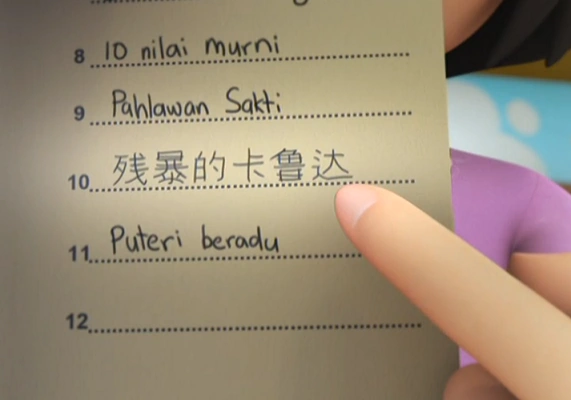 8 10 nilai murni
9 Pahlawan Sakti
10 残暴的卡鲁达
11 Puteri beradu
12